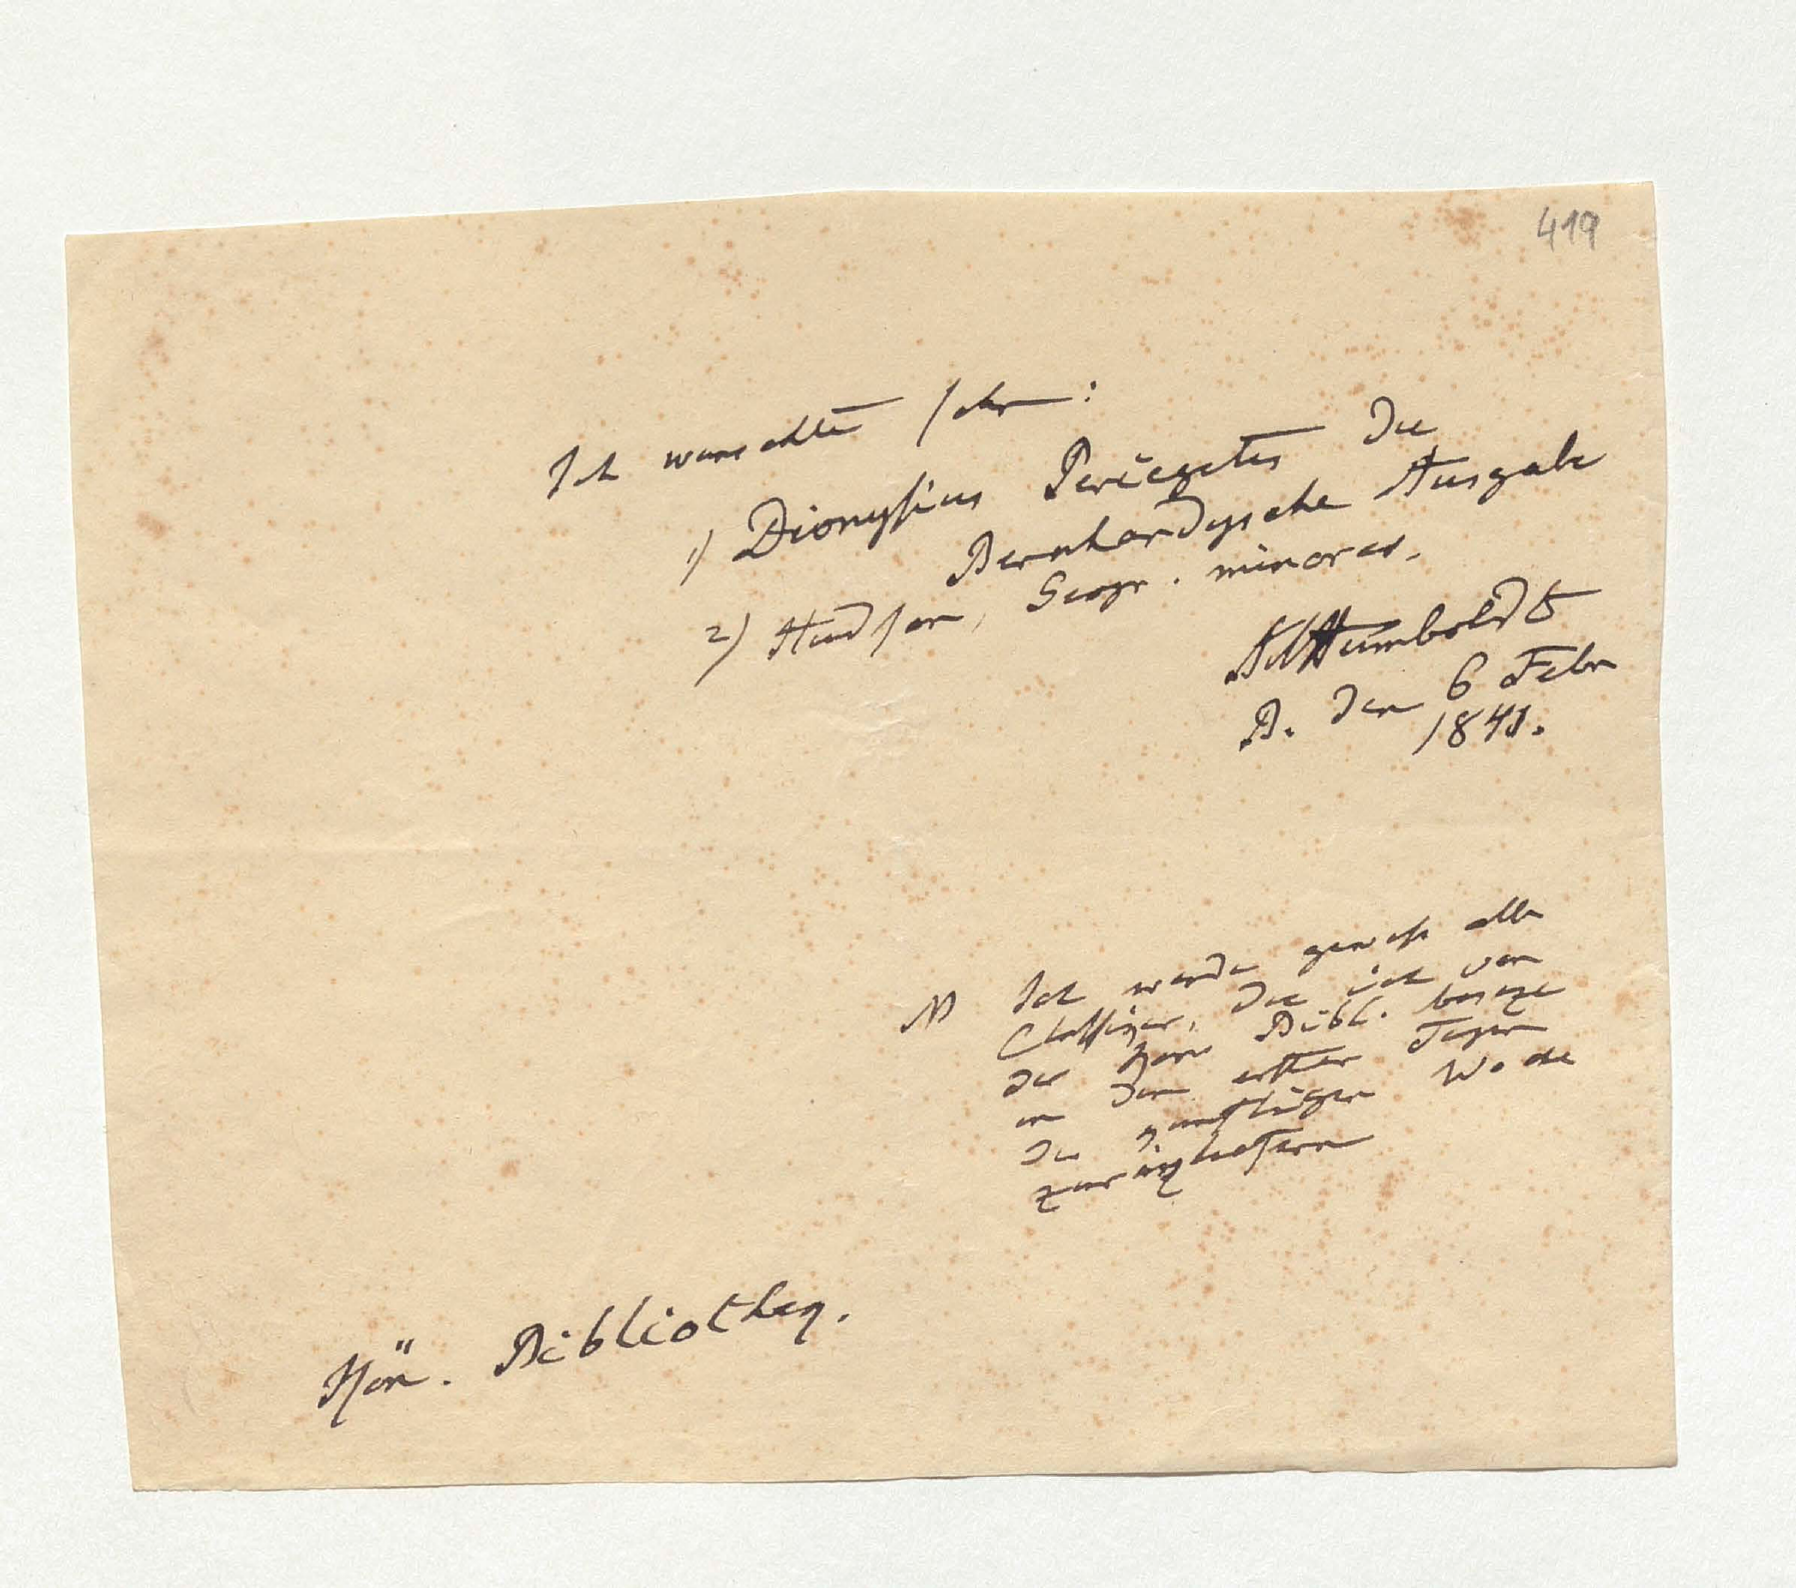 419
Ich wünschte sehr:
1) Dionysius Periegetes die
Bernhardysche Ausgabe
2) Hudson, Geogr. minores.
AlHumboldt
B. den 6 Febr
1841.
N Ich werde gewiß alle
Classiker, die ich von
der Kön Bibl. besize
in den ersten Tagen
der künftigen Woche
zurükliefern
Kön. Bibliothek.